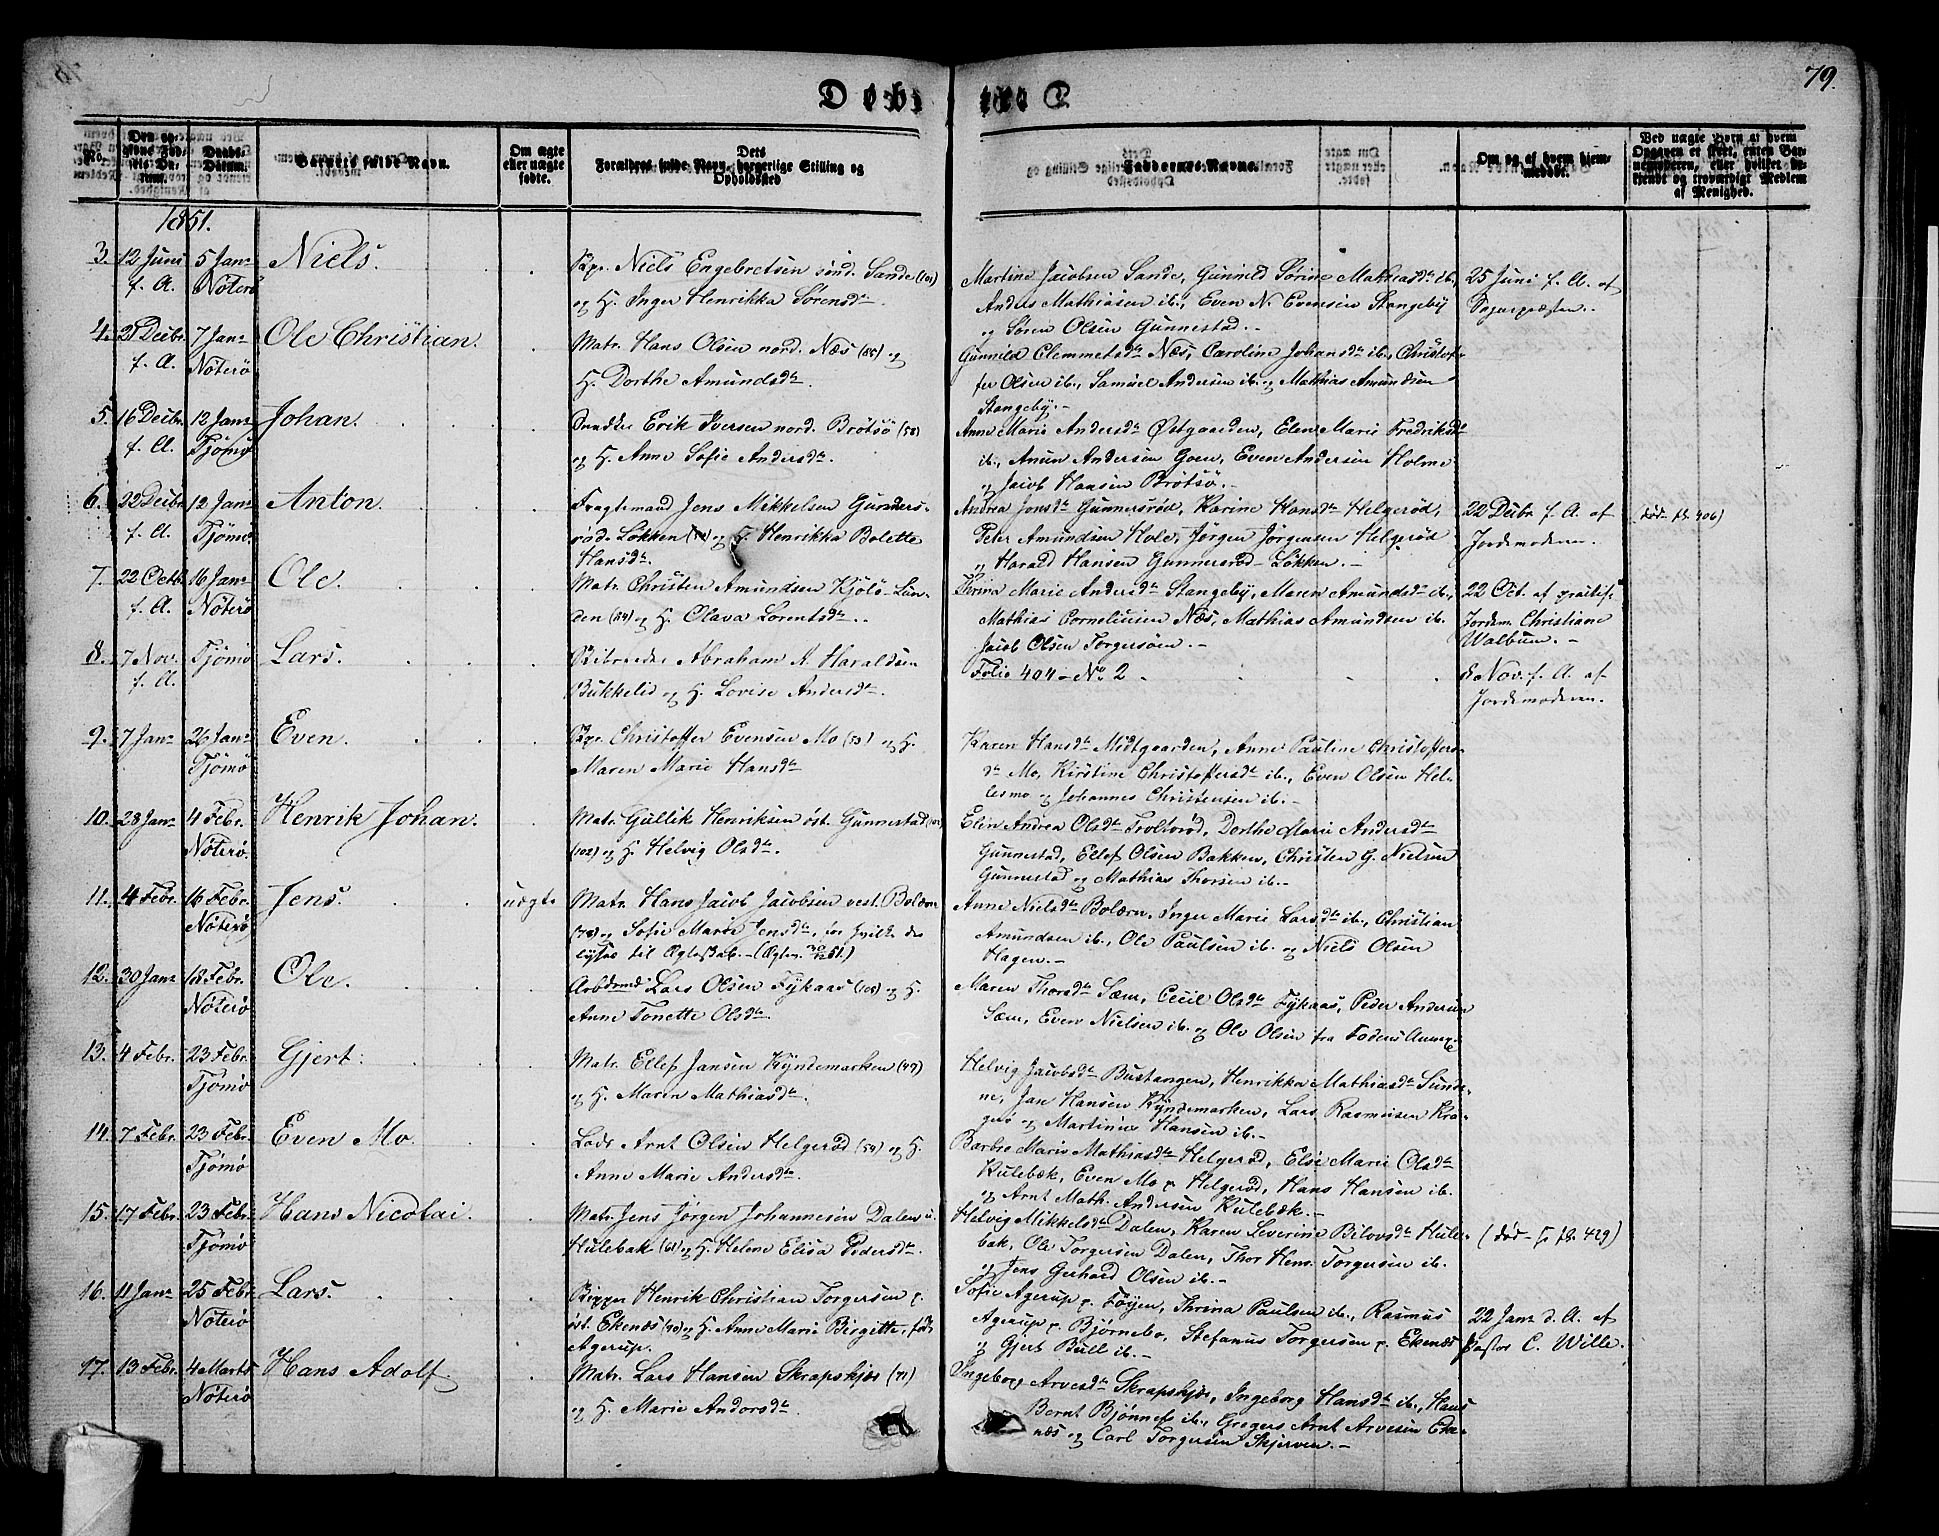 Døbte
79.
No.
Den op-
givne Fød-
sels Da-
tum.
Daabs-
Datum.
Barnets fulde Navn.
Om ægte
eller uægte
født.
Dets
Forældres fulde Navn, borgerlige Stilling og
Opholdssted
Faddernes Navne.
Om og af hvem hjem-
medøbt.
Ved uægte Børn at hvem
Opgaven er skeet, enten Bar-
nemoderen, eller hvilket be-
kjendt og troværdigt Medlem
af Menighed.
1851.
3. 12 Juni f. A. 5 Janr Nøterø Niels. Niels Engebretsen sönd. Sande (101)
og H. Inger Henrikka Sørensdtr.
Martine Jacobsen Sande, Gunnild Sørine Mathiasdtr ib.,
Anders Mathiasen ib., Even N. Evensen Stangeby
og Søren Olsen Gunnestad.-
25 Juni f. A. af
Sognepræsten.
4. 21 Decbr. f. A. 7 Janr Nøterö Ole Christian. Matr. Hans Olsen nord. Næs (85) og
H. Dorthe Amundsdtr.
Gunnild Clemmetsdtr Næs, Caroline Johansdtr ib., Christof-
fer Olsen ib., Samuel Andersen ib. og Mathias Amundsen
Stangeby.-
5. 16 Decbr. f. A. 12 Janr Tjømø Johan. Erik Iversen nord. Brøtsö (58)
og H. Anne Sofie Andersdtr.
Anne Marie Andersdtr Østgaarden, Elen Marie Fredriksdtr
ib., Anun Andersen Goen, Even Andersen Holme
og Jacob Hansen Brøtsø.-
6. 22 Decbr. f. A. 12 Janr Tjømø Anton. Fragtemand Jens Mikkelsen Gunners-
rød-Løkken og H. Henrikka Bolette
Hansdtr.
Andrea Jonsdtr Gunnersröd, Karine Hansdtr Helgerød,
Peter Amundsen Hole, Jørgen Jörgensen Helgeröd
og Harald Hansen Gunnersröd-Løkken.-
22 Decbr. f. A. af
Jordemoderen.
(død fl. 406)
7. 22 Octbr. f. A. 16 Janr Nøterö Ole. Matr. Christen Amundsen Kjölö-Lun-
den (89) og H. Olava Lorentsdtr.
Thrina Marie Andersdtr Stangeby, Maren Amundsdtr ib.,
Mathias Corneliusen Næs, Mathias Amundsen ib.
Jacob Olsen Torgersöen.-
22 Oct. af
Jordem. Christiane
Walbum.-
8. 7 Nov. f. A. Tjømø Lars. Abraham A. Haraldsen
Bukkelid og H. Lovise Andersdtr.
Folio 404 - No 2
8 Nov. f. A. af
Jordemoderen.
9. 7 Janr 26 Janr Tjömö Even. Christoffer Evensen Mo (53) og H.
Maren Marie Hansdtr
Karen Hansdtr Midtgaarden, Anne Pauline Christoffers-
dtr Mo, Kirstine Christoffersdtr ib., Even Olsen Hel-
lesmo og Johannes Christensen ib.-
10. 28 Janr 4 Febr. Nøterø. Henrik Johan. Matr. Gullik Henriksen öst. Gunnestad (101)
(102) og H. Helvig Olsdtr.
Elen Andrea Olsdtr Trolsröd, Dorthe Marie Andersdtr
Gunnestad, Ellef Olsen Bakken, Christen G. Nielsen
Gunnestad og Mathias Thorsen ib.-
11. 4 Febr. 16 Febr. Nøterø Jens. uægte Matr. Hans Jacob Jacobsen vest. Bolærn
(78) og Sofie Marie Jensdtr, for hvilke der
lyses til Ægteskab.-
Anne Nielsdtr Bolærn, Inger Marie Larsdtr ib., Christian
Amundsen ib., Ole Paulsen ib. og Niels Olsen
Hagen.-
12. 30 Janr 18 Febr. Nøterø Ole. Arbdsmd Lars Olsen Fykaas (108) og H.
Anne Tonette Olsdtr.
Maren Thorsdtr Sæm, Cecil Olsdtr Fykaas, Peder Andersen
Sæm, Even Nielsen ib. og Ole Olsen fra Foderis
13. 4 Febr. 23 Febr. Tjømø Gjert. Matr. Ellef Jansen Kyndemarken (47)
og H. Maren Mathiasdtr.
Helvig Jacobsdtr Bustangen, Henrikka Mathiasdtr Sunde-
ne, Jan Hansen Kyndemarken, Lars Rasmusen Kra-
gerø og Martinus Hansen ib.-
14. 7 Febr. 23 Febr. Tjømø Even Mo. Lods Arnt Olsen Helgerød (54) og H.
Anne Marie Andersdtr.
Barbro Marie Mathiasdtr Helgeröd, Else Marie Olsdtr
Kulebæk, Even Mo p. Helgeröd, Hans Hansen ib.
og Arnt Math. Andersen Kulebæk.-
15. 17 Febr. 23 Febr. Tjömø Hans Nicolai. Matr. Jens Jörgen Johannesen Dalen u.
Hulebak (61) og H. Helene Elisa Pedersdtr.
Helvig Mikkelsdtr Dalen, Karen Severine Bilovsdtr Hule-
bak, Ole Torgersen Dalen, Thor Hans. Torgersen ib.
og Jens Gerhard Olsen ib.-
(død - fl. 429)
16. 11 Janr 25 Febr. Nøterø Lars. Henrik Christian Torgersen p.
öst. Ekenæs (90) og H. Anne Marie Birgitte, föd
Agerup.
Sofie Agerup p. Föyen, Thrina Paulsen ib., Rasmus
Agerup p. Bjørnebo, Stefanus Torgersen p. Ekenæs
og Gjert Bull ib.-
22 Janr d. A. af
Pastor C. Wille.
17. 13 Febr. 4 Marts Nøterø Hans Adolf. Matr. Lars Hansen Skrapskjær (71)
og H. Marie Andersdtr.
Ingeborg Arvesdtr Skrapskjær, Ingeborg Hansdtr ib., Hans
Bernt Bjönnes ib., Gregers Arnt Arvesen Eke-
næs og Carl Torgersen Skjerven.-